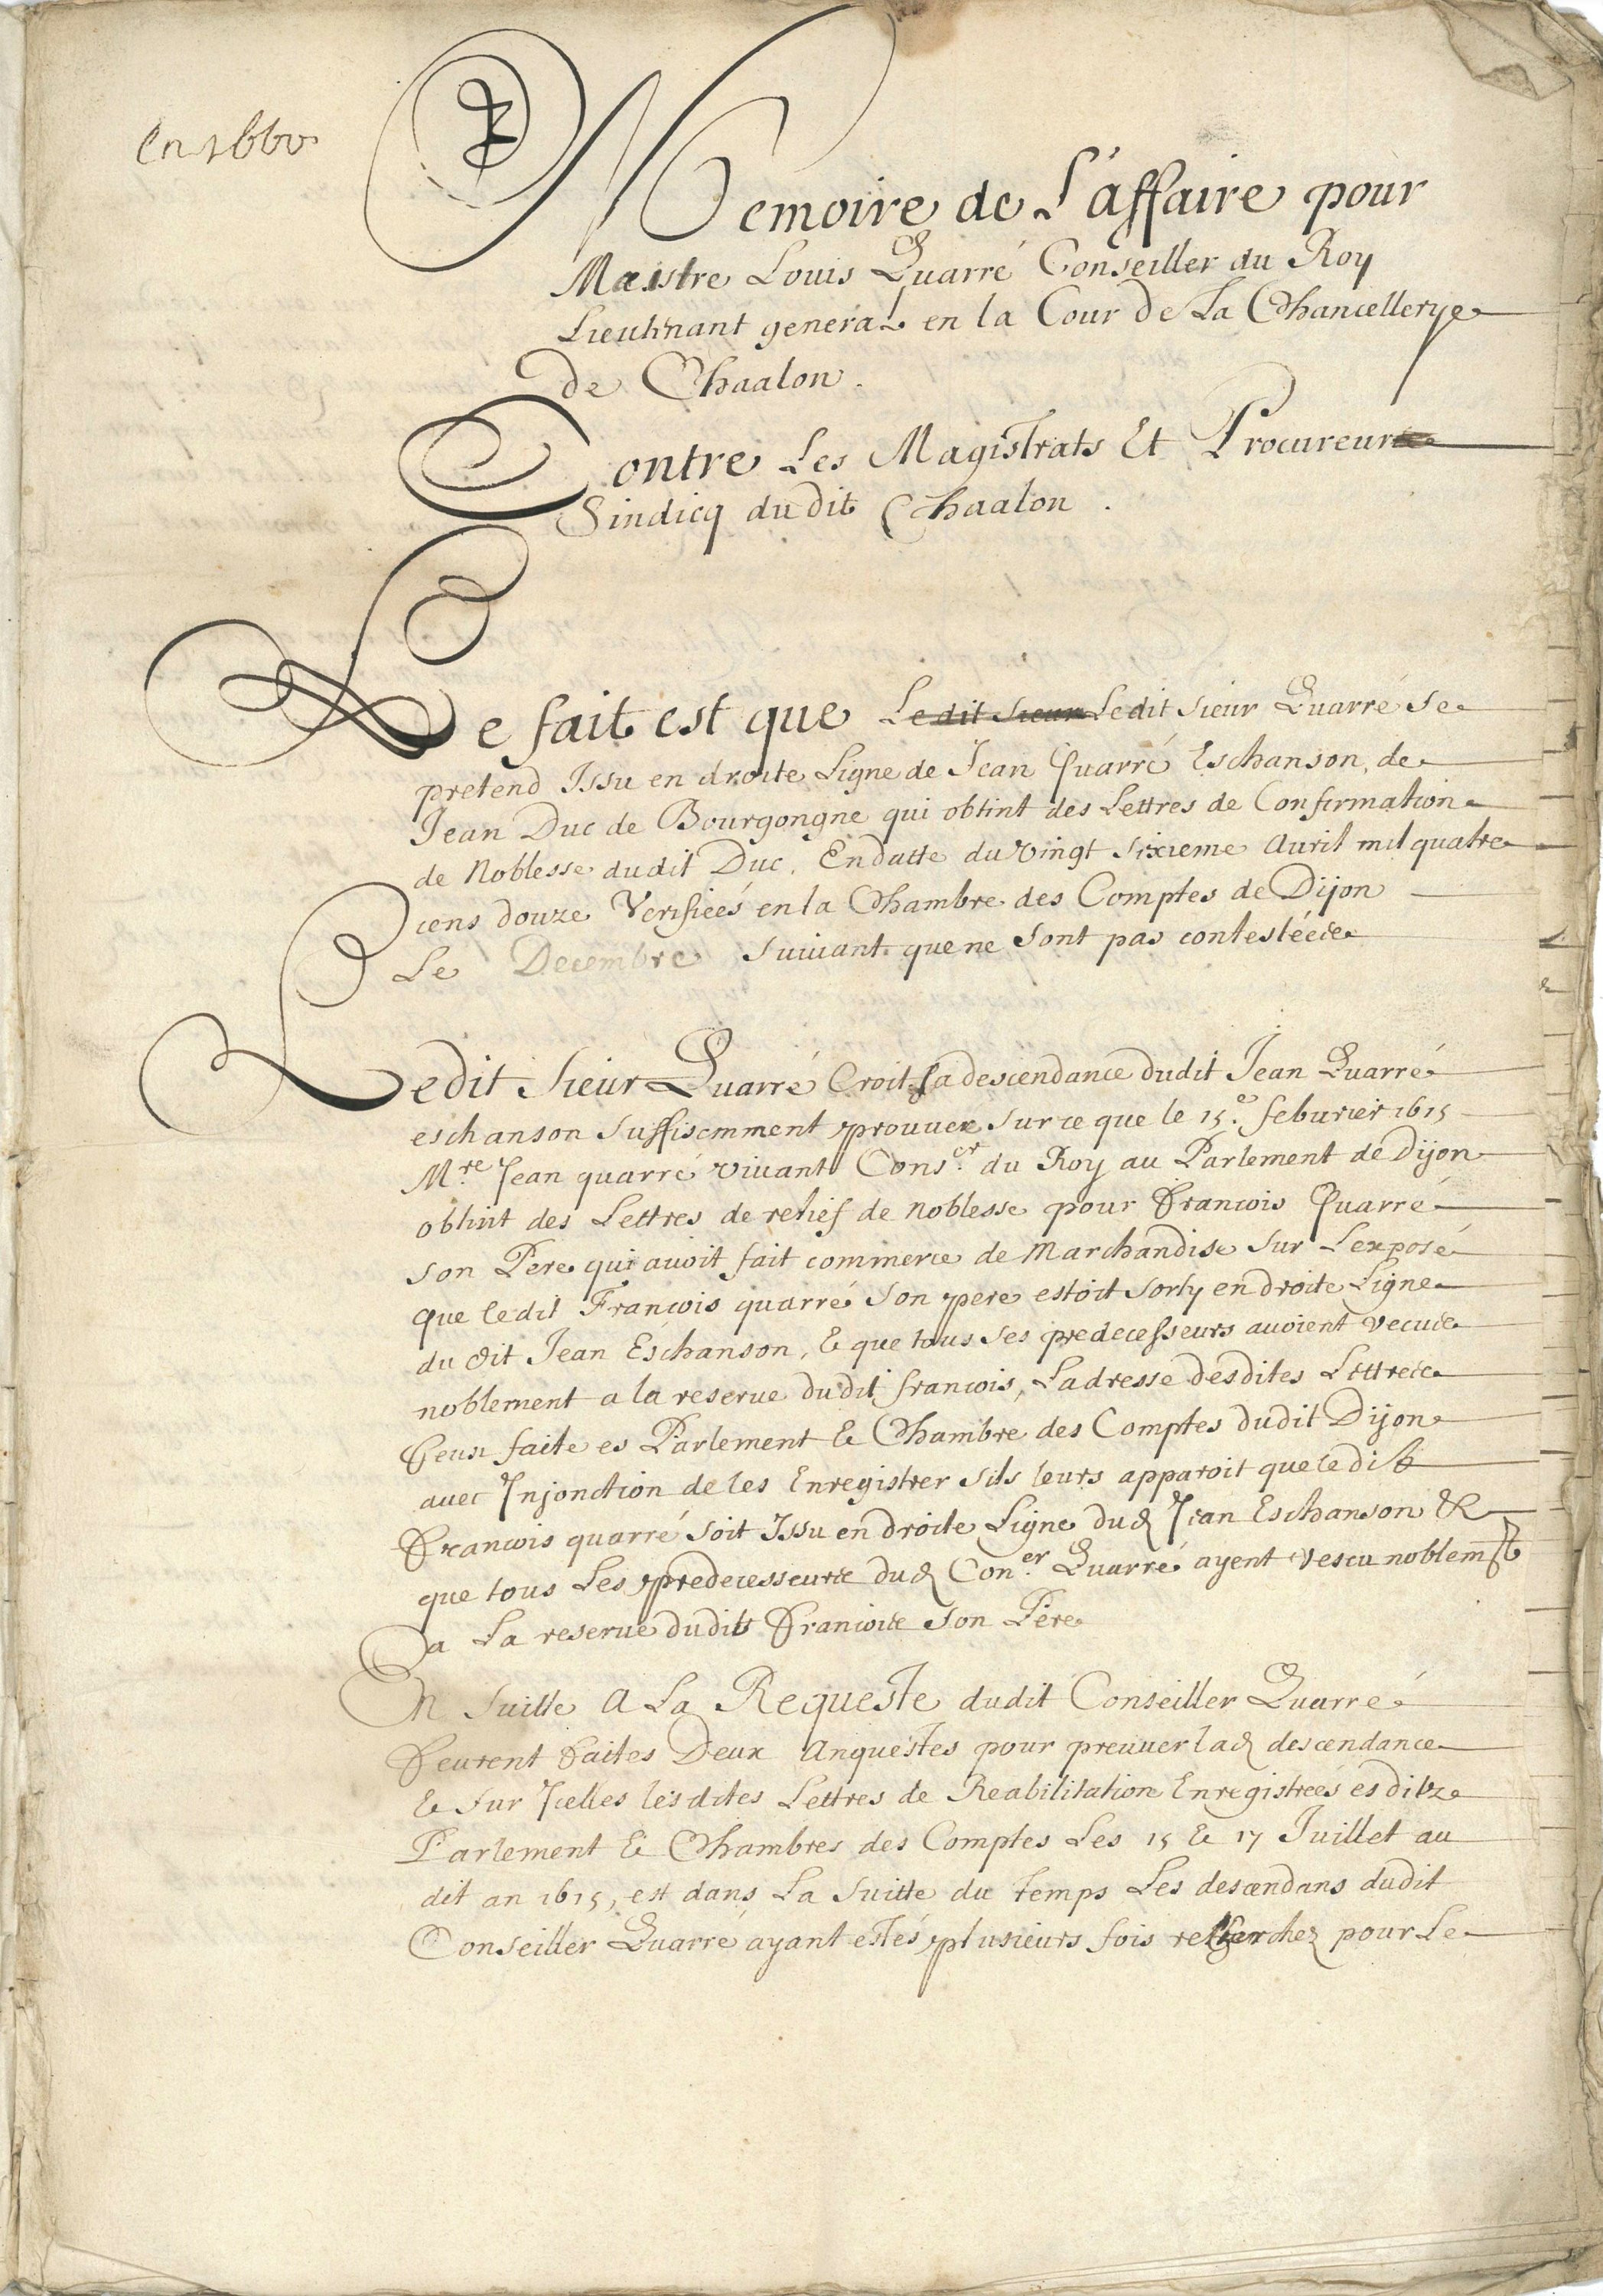 en 1660
Memoire de L'affaire pour
Maistre Louis Quarré Conseiller du Roy
Lieutenant general en la Cour de La Chancellerye
de Chaalon.
Contre Les Magistrats Et Procureur
Sindicq dudit Chaalon.
Le fait est que Ledit sieur Ledit sieur Quarré se
pretend Issu en droite Ligne de Jean Quarré Eschanson, de
Jean Duc de Bourgongne qui obtint des Lettres de Confirmation
de Noblesse dudit Duc, En datte du vingt sixieme Auril mil quatre
cens douze Verifieés en la Chambre des Comptes de Dijon
Le Decembre suiuant que ne sont pas contestéés
Ledit Sieur Quarré Croit sa descendance dudit Jean Quarré
eschanson suffisemment prouuee sur ce que le 15.e feburier 1615
M.re Jean quarré viuant Cons.er du Roy au Parlement de Dijon
obtint des Lettres de relief de noblesse pour Francois Quarré
son Pere qui auoit fait commerce de Marchandise sur L'exposé
que ledit Francois quarré son pere estoit sorty en droite Ligne
du dit Jean Eschanson, & que tous ses predecesseurs auoient vecus
noblement a la reserue dudit francois, Ladresse desdites Lettres
feust faite es Parlement & Chambre des Comptes dudit Dijon
auec Injonction de les Enregistrer sils leurs apparoit que ledit
Francois quarré soit Issu en droite Ligne dud Jean Eschanson &
que tous Les predecesseurs dud Con.er Quarré ayent vescu noblemt
a La reserue dudit Francois son Pere
En suitte A La Requeste dudit Conseiller Quarré
Feurent Faites Deux Anquestes pour preuuer lad descendance
& sur Icelles lesdites Lettres de Reabilitation Enregistreés esditz
Parlement & Chambres des Comptes Les 15 & 17 Juillet au
dit an 1615, est dans La suitte du temps Les descendans dudit
Conseiller Quarré ayant estés plusieurs fois recherchez pour Le